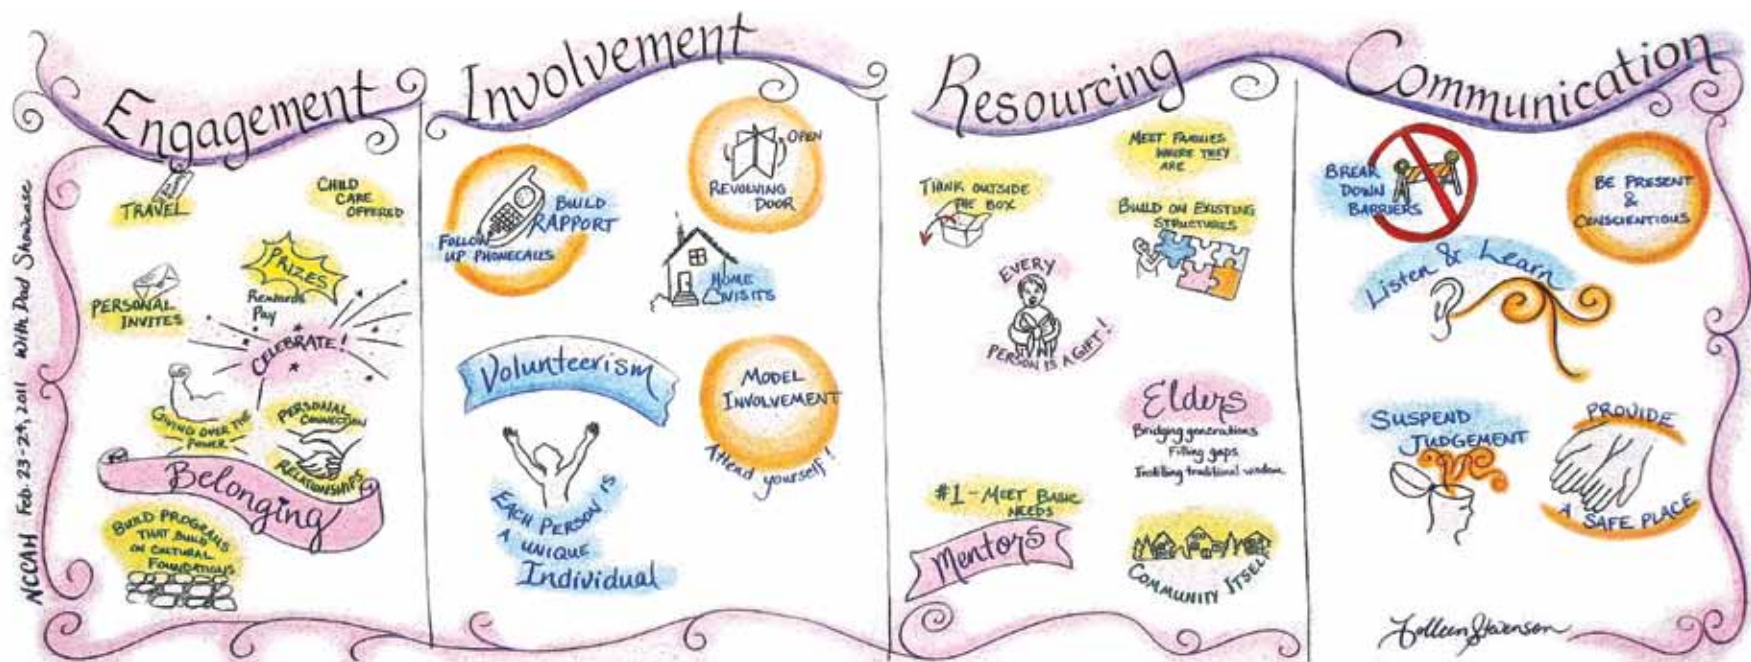 Engagement
TRAVEL
CHILD
CARE
OFFERED
PERSONAL
INVITES
PRIZES
Rewards
Pay
CELEBRATE!
GIVING OVER THE
POWER
PERSONAL
CONNECTION
RELATIONSHIPS
Belonging
BUILD PROGRAMS
THAT BUILD
ON CULTURAL
FOUNDATIONS
Involvement
BUILD
RAPPORT
FOLLOW
UP PHONECALLS
OPEN
REVOLVING
DOOR
HOME
VISITS
Volunteerism
MODEL
INVOLVEMENT
Attend yourself!
EACH PERSON IS
A UNIQUE
Individual
Resourcing
THINK OUTSIDE
THE BOX
MEET FAMILIES
WHERE THEY
ARE
BUILD ON EXISTING
STRUCTURES
EVERY
PERSON IS A GIFT!
Elders
Bridging generations
Filling gaps
Instilling traditional wisdom
#1 - MEET BASIC
NEEDS
Mentors
COMMUNITY ITSELF
Communication
BREAK
DOWN
BARRIERS
BE PRESENT
&
CONSCIENTIOUS
Listen & Learn
SUSPEND
JUDGEMENT
PROVIDE
A SAFE PLACE
Colleen Stevenson
NCCAH Feb. 23-24, 2011 With Dad Showcase